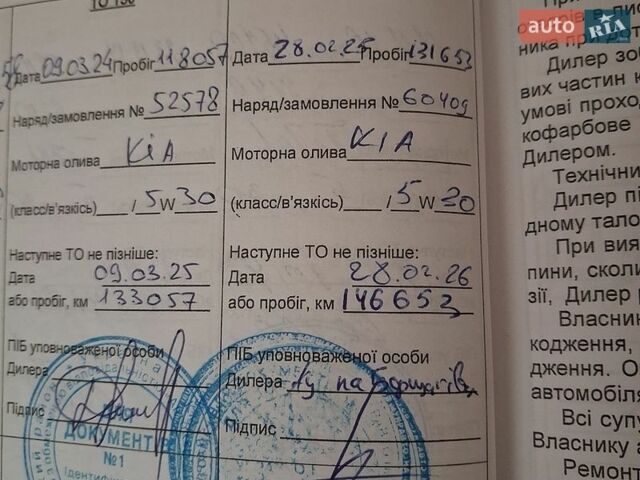 auto RIA
ТО 150
Дата 09.03.24 Пробіг 118057
Наряд/замовлення № 52578
Моторна олива KIA
(класс/в'язкісь) , 5 W 30
Наступне ТО не пізніше:
Дата 09.03.25
або пробіг, км 133057
ПІБ уповноваженої особи
Дилера
Підпис
ДОКУМЕНТІВ
№1
Дата 28.02.25 Пробіг 131653
Наряд/замовлення № 60409
Моторна олива KIA
(класс/в'язкісь) , 5 W 30
Наступне ТО не пізніше:
Дата 28.02.26
або пробіг, км 146653
ПІБ уповноваженої особи
Дилера
Підпис
При
ника при
Дилер зоб
вих частин к
умові проход
кофарбове
Дилером.
Технічни
Дилер пі
дному тало
При вия
пини, сколи
зії, Дилер
Власник
кодження,
дження. О
автомобіля
Всі супу
Власнику а
Ремонт